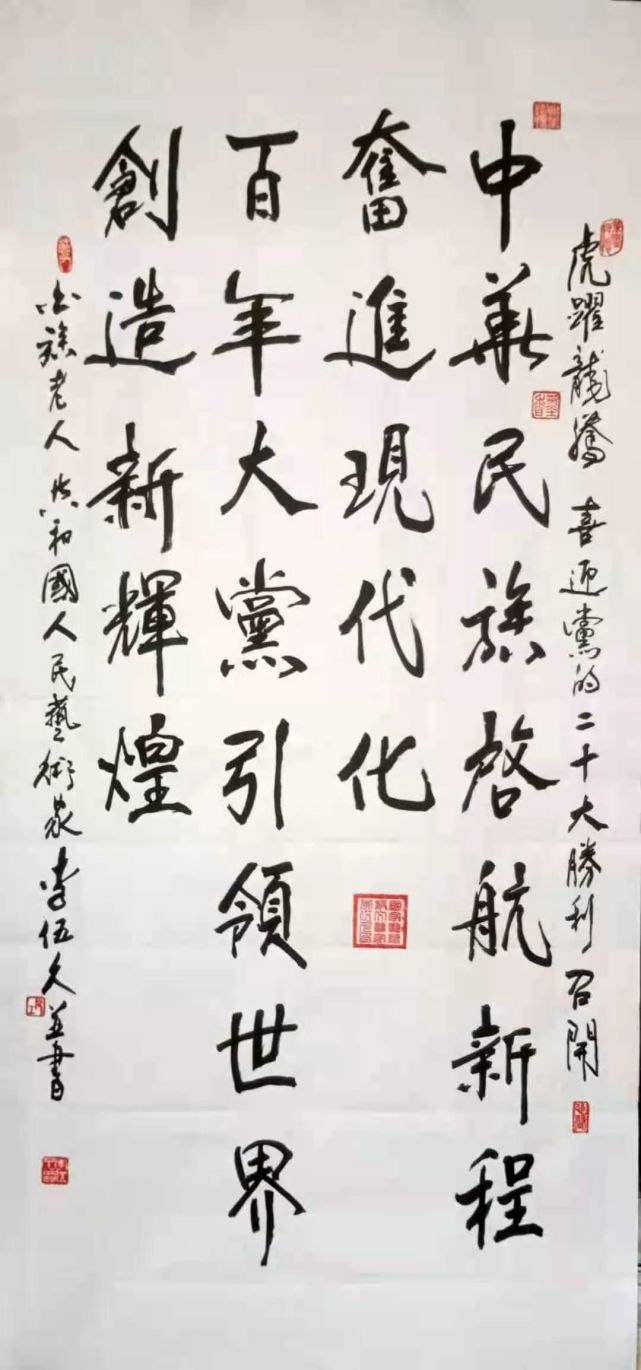 虎躍龍騰 喜迎黨的二十大勝利召開
中華民族啓航新程
奮進現代化
百年大黨引領世界
創造新輝煌
老人 共和國人民藝術家 李伍久並書